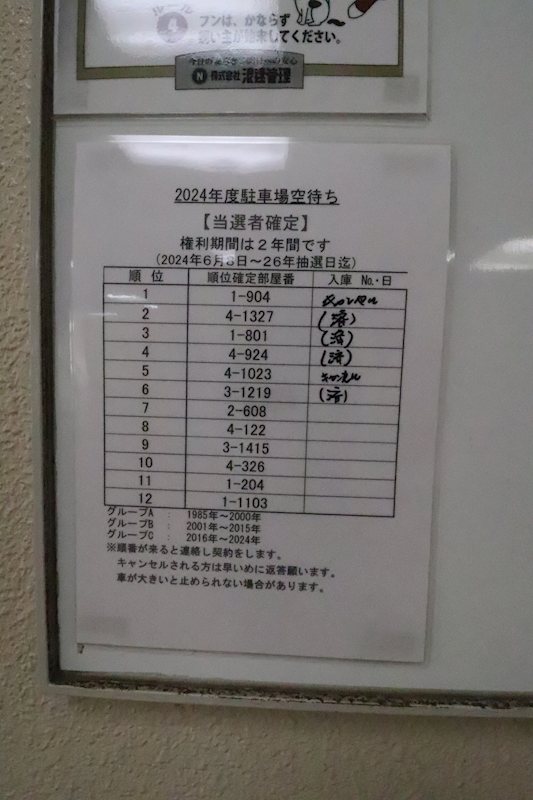 フンは、かならず
飼い主が始末してください。
株式会社 浪速管理
2024年度駐車場空待ち
【当選者確定】
権利期間は2年間です
(2024年6月8日～26年抽選日迄)
順 位 順位確定部屋番 入庫 No.・日
1 1-904 キャンセル
2 4-1327 (済)
3 1-801 (済)
4 4-924 (済)
5 4-1023 キャンセル
6 3-1219 (済)
7 2-608
8 4-122
9 3-1415
10 4-326
11 1-204
12 1-1103
グループA : 1985年～2000年
グループB : 2001年～2015年
グループC : 2016年～2024年
※順番が来ると連絡し契約をします。
キャンセルされる方は早いめに返答願います。
車が大きいと止められない場合があります。